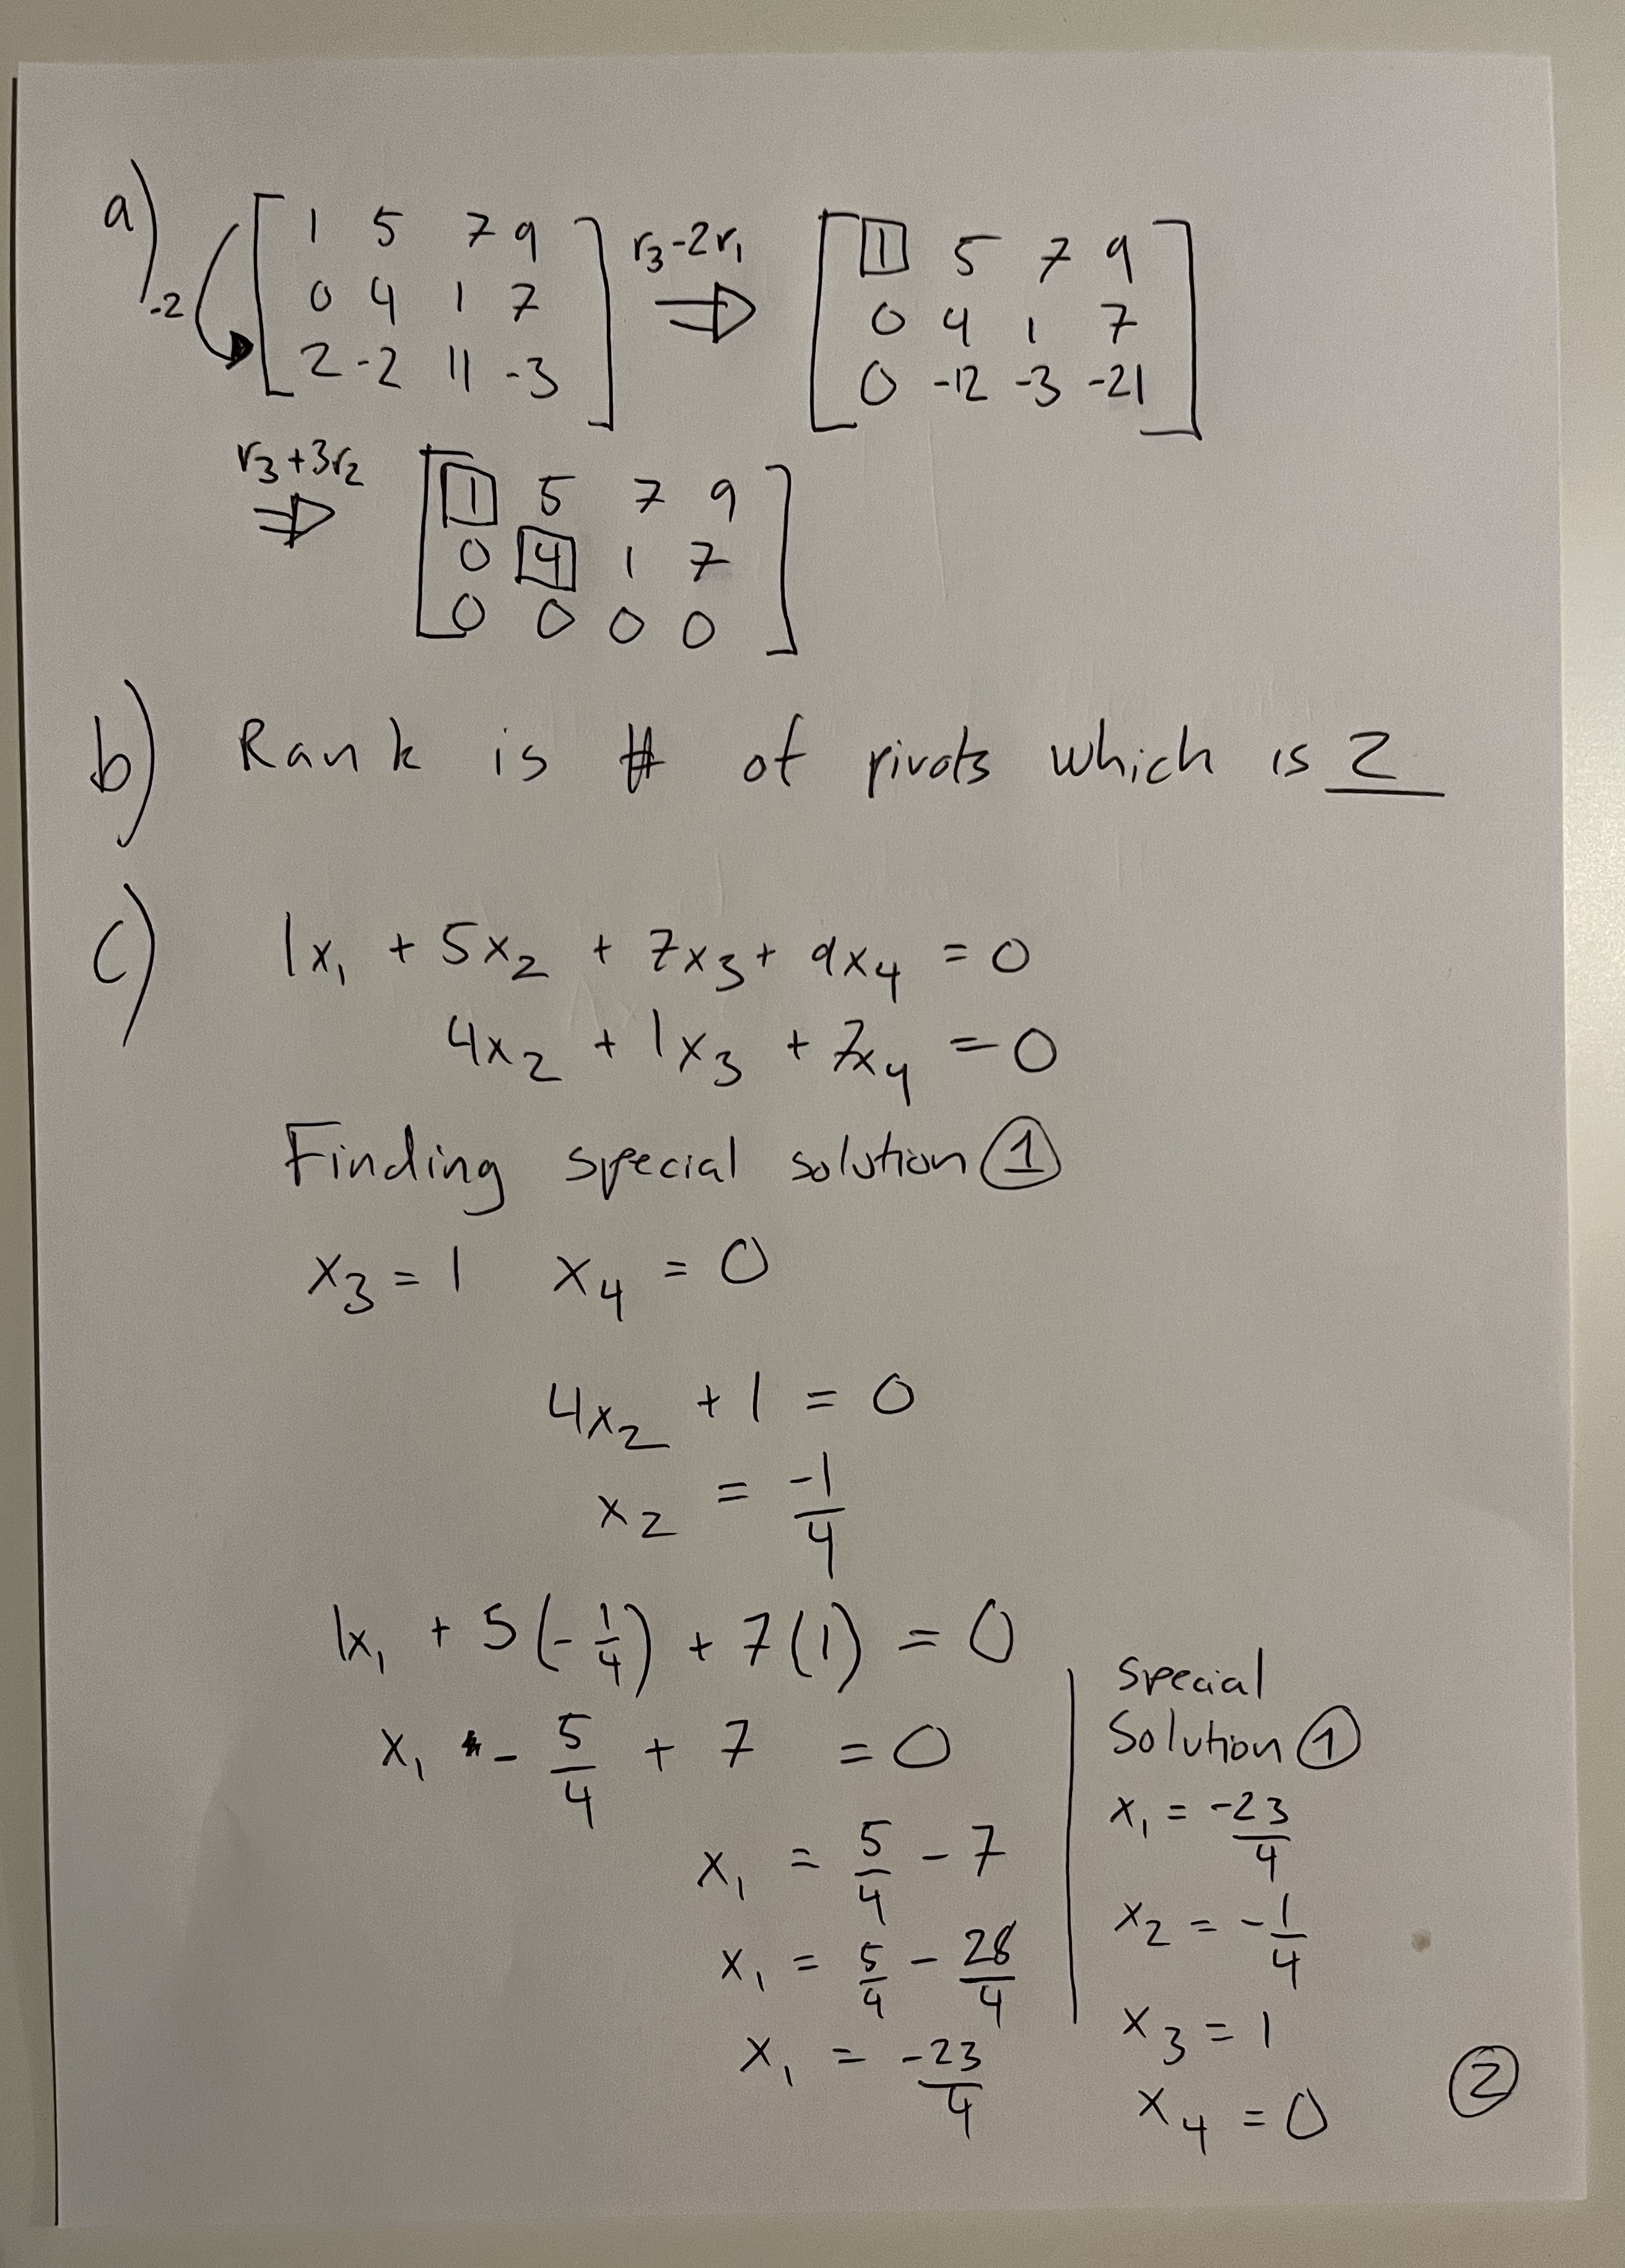 a)
-2
[ 1 5 7 9 ]
[ 0 4 1 7 ]
[ 2 -2 11 -3 ]
r₃-2r₁
⇒
[ 1 5 7 9 ]
[ 0 4 1 7 ]
[ 0 -12 -3 -21 ]
r₃+3r₂
⇒
[ 1 5 7 9 ]
[ 0 4 1 7 ]
[ 0 0 0 0 ]
b) Rank is # of pivots which is 2
c) 1x₁ + 5x₂ + 7x₃ + 9x₄ = 0
4x₂ + 1x₃ + 7x₄ = 0
Finding special solution ①
x₃ = 1 x₄ = 0
4x₂ + 1 = 0
x₂ = -1/4
1x₁ + 5(-1/4) + 7(1) = 0
x₁ - 5/4 + 7 = 0
x₁ = 5/4 - 7
x₁ = 5/4 - 28/4
x₁ = -23/4
special
solution ①
x₁ = -23/4
x₂ = -1/4
x₃ = 1
x₄ = 0
②